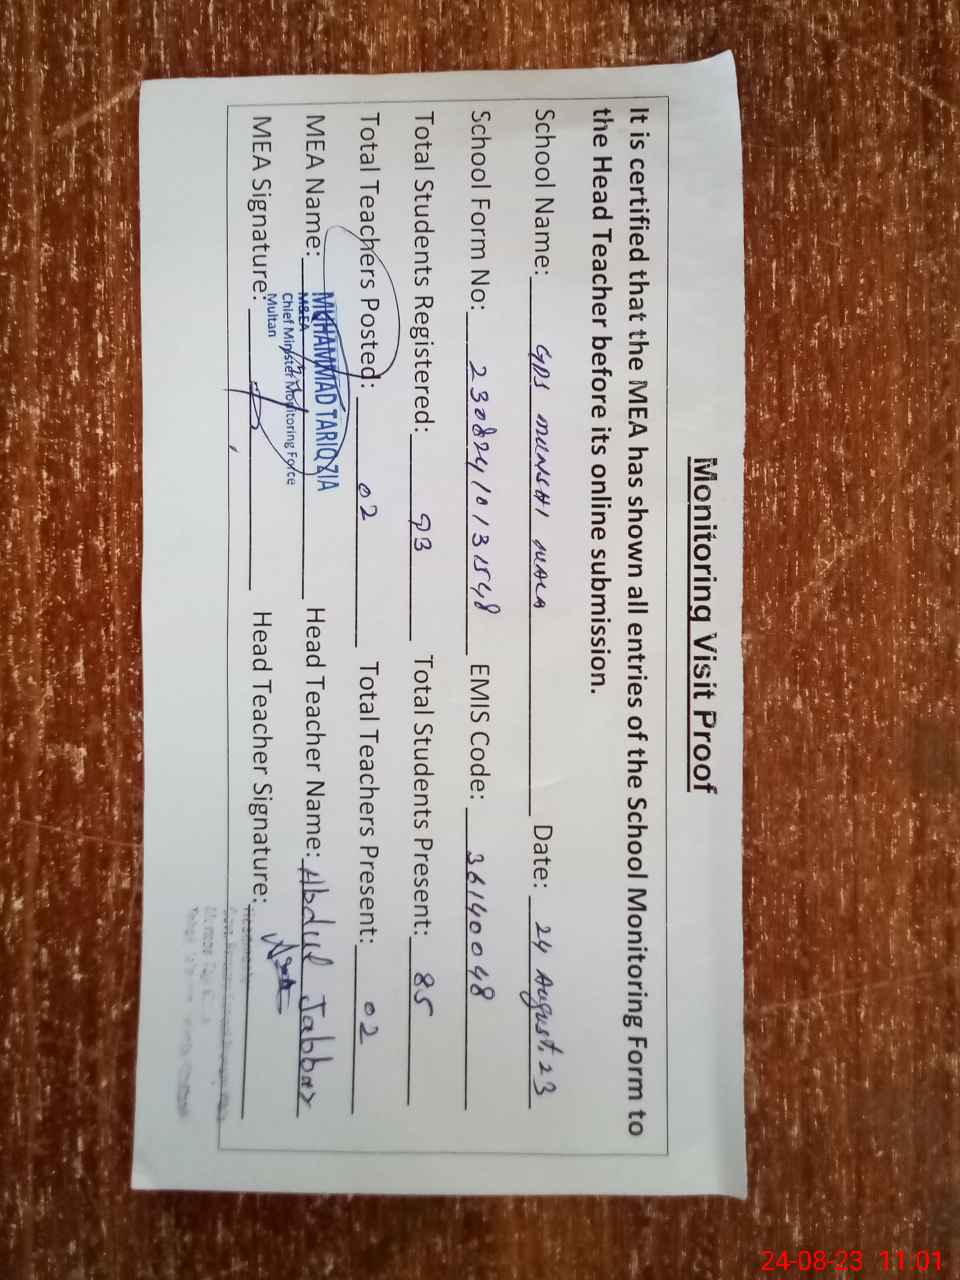 Monitoring Visit Proof
It is certified that the MEA has shown all entries of the School Monitoring Form to
the Head Teacher before its online submission.
School Name: GPS MUNSHI WALA Date: 24 August, 23
School Form No: 23082410131548 EMIS Code: 36140048
Total Students Registered: 93 Total Students Present: 85
Total Teachers Posted: 02 Total Teachers Present: 02
MEA Name: MUHAMMAD TARIQ ZIA Head Teacher Name: Abdul Jabbar
M&EA
Chief Minister Monitoring Force
Multan
MEA Signature: Head Teacher Signature:
24-08-23 11:01